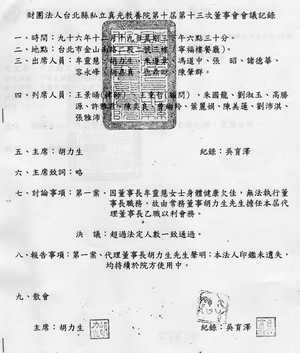 財團法人台北縣私立真光教養院第十屆第十三次董事會會議記錄
一、時間:九十六年十二月十九日星期三下午六點三十分。
二、地點:台北市金山南路二段二號三樓(寧福樓餐廳)。
三、出席人員:牟靈慧、胡力生、朱運章、馮道中、張 昭、諸德華、
容永峰、楊嘉真、 、陳肇群。
四、列席人員:王景暘(律師)、王 哲(顧問)、朱國龍、劉淑玉、高勝
源、許雅 、陳奕良、 翰羚、葉麗娟、陳美蓮、劉沛淇、
張雅婷
五、主席:胡力生 紀錄:吳育澤
六、主席致詞:略
七、討論事項:第一案、因董事長牟靈慧女士身體健康欠佳,無法執行董
事長職務,故由常務董事胡力生先生擔任本屆代
理董事長乙職以利會務。
決 議:超過法定人數一致通過。
八、報告事項:第一案、代理董事長胡力生先生聲明:本法人印鑑未遺失,
均持續於院方使用中。
九、散會
主席:胡力生 紀錄:吳育澤